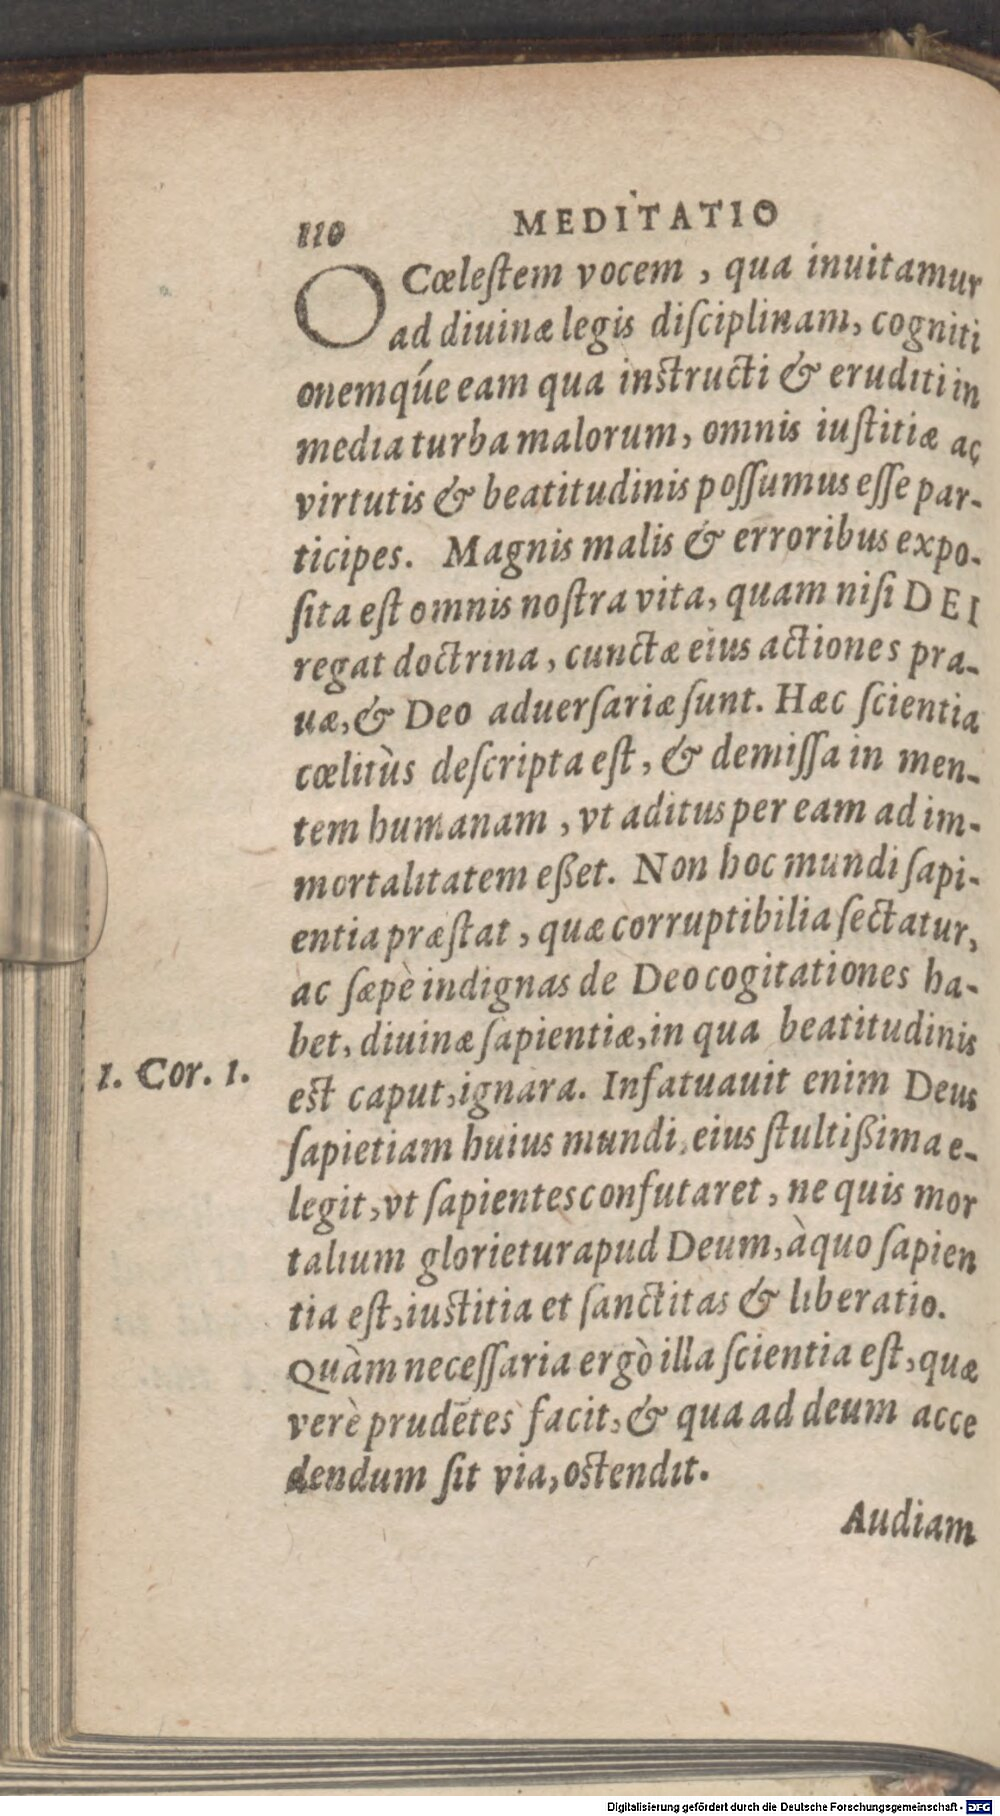 110 MEDITATIO
O Cœleſtem vocem , qua inuitamur
ad diuinæ legis diſciplinam, cogniti
onemqúe eam qua inſtructi & eruditi in
media turba malorum, omnis iuſtitiæ ac
virtutis & beatitudinis poſſumus eſſe par-
ticipes. Magnis malis & erroribus expo-
ſita eſt omnis noſtra vita, quam niſi DEI
regat doctrina , cunctæ eius actiones pra-
uæ, & Deo aduerſariæ ſunt. Hæc ſcientia
cœlitùs deſcripta eſt, & demiſſa in men-
tem humanam , vt aditus per eam ad im-
mortalitatem eßet. Non hoc mundi ſapi-
entia præſtat , quæ corruptibilia ſectatur,
ac ſæpè indignas de Deo cogitationes ha-
bet, diuinæ ſapientiæ, in qua beatitudinis
1. Cor. 1.
eſt caput, ignara. Infatuauit enim Deus
ſapietiam huius mundi, eius ſtultißima e-
legit, vt ſapientes confutaret , ne quis mor
talium glorietur apud Deum, à quo ſapien
tia eſt, iuſtitia et ſanctitas & liberatio.
Quàm neceſſaria ergò illa ſcientia eſt, quæ
verè prudētes facit, & qua ad deum acce
dendum ſit via, oſtendit.
Audiam
Digitalisierung gefördert durch die Deutsche Forschungsgemeinschaft - DFG